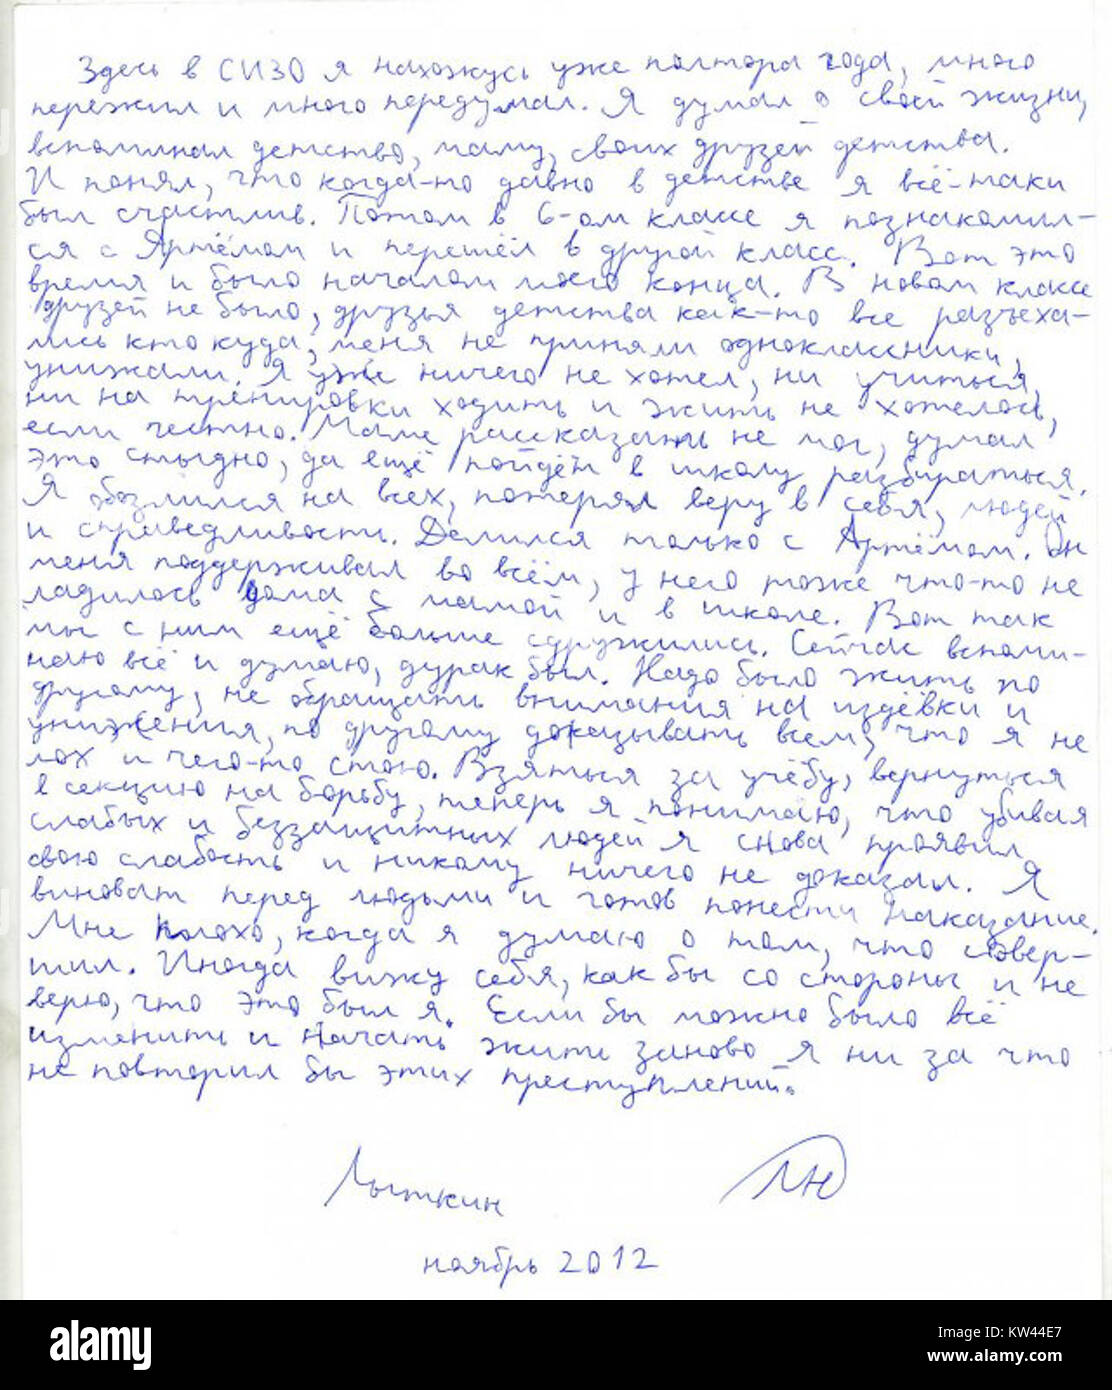 Здесь в СИЗО я нахожусь уже полтора года, много
пережил и много передумал. Я думал о своей жизни,
вспоминал детство, маму, своих друзей детства.
И понял, что когда-то давно в детстве я всё-таки
был счастлив. Потом в 6-ом классе я познакомил-
ся с Артёмом и перешёл в другой класс. Вот это
время и было началом моего конца. В новом классе
друзей не было, друзья детства как-то все разъеха-
лись кто куда, меня не приняли одноклассники,
унижали. Я уже ничего не хотел, ни учиться,
ни на тренировки ходить и жить не хотелось,
если честно. Маме рассказать не мог, думал
это стыдно, да ещё пойдёт в школу разбираться.
Я обозлился на всех, потерял веру в себя, людей
и справедливость. Делился только с Артёмом. Он
меня поддерживал во всём, у него тоже что-то не
ладилось дома с мамой и в школе. Вот так
мы с ним ещё больше сдружились. Сейчас вспоми-
наю всё и думаю, дурак был. Надо было жить по
другому, не обращать внимания на издёвки и
унижения, по другому доказывать всем, что я не
лох и чего-то стою. Взяться за учёбу, вернуться
в секцию на борьбу, теперь я понимаю, что убивая
слабых и беззащитных людей я снова проявил
свою слабость и никому ничего не доказал. Я
виноват перед людьми и готов понести наказание.
Мне плохо, когда я думаю о том, что совер-
шил. Иногда вижу себя, как бы со стороны и не
верю, что это был я. Если бы можно было всё
изменить и начать жить заново я ни за что
не повторил бы этих преступлений.
Лыткин
ноябрь 2012
alamy
Image ID: KW44E7
www.alamy.com